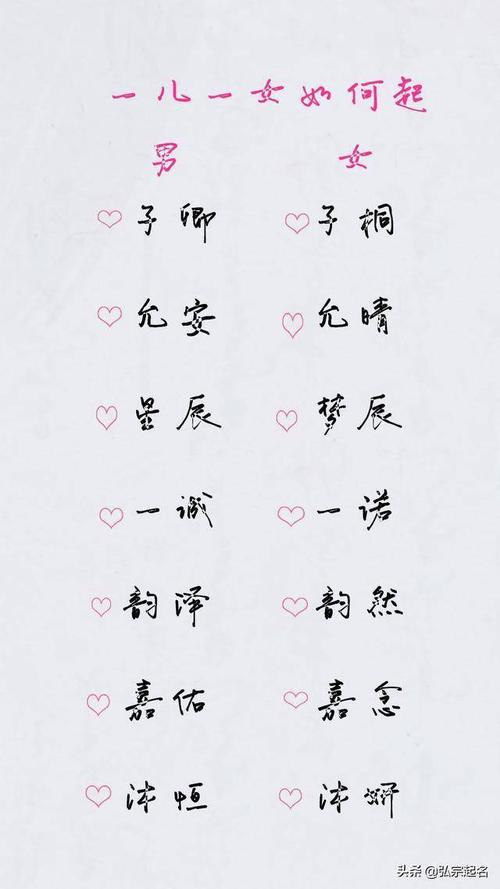 一儿一女如何起
男 女
子卿 子桐
允安 允晴
星辰 梦辰
一诚 一诺
韵泽 韵然
嘉佑 嘉念
沐恒 沐妍
头条 @弘宗起名